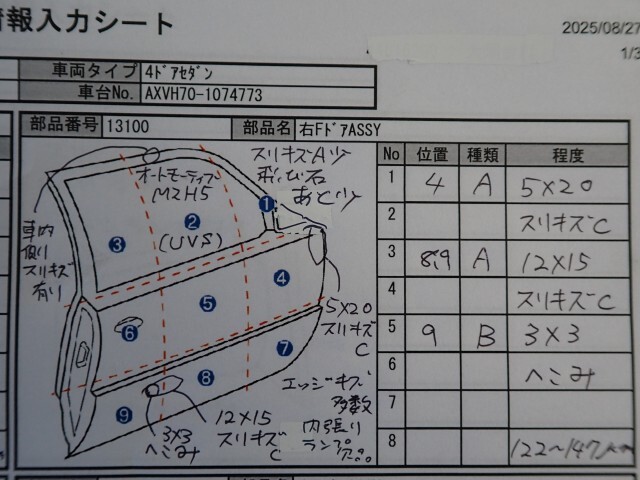 情報入力シート
2025/08/27
1/3
車両タイプ 4ドアセダン
車台No. AXVH70-1074773
部品番号 13100 部品名 右FドアASSY
オートモーティブ
M2H5
スリキズAツ
飛び石
あとツ
車内
側り
スリキズ
有り
1
2
(UVS)
3
4
5
6
7
8
9
5×20
スリキズ
C
エッジキズ
多数
内張り
ランプ
欠品
12×15
スリキズ
C
3×3
へこみ
No 位置 種類 程度
1 4 A 5×20
2 スリキズC
3 8,9 A 12×15
4 スリキズC
5 9 B 3×3
6 へこみ
7
8 122~147